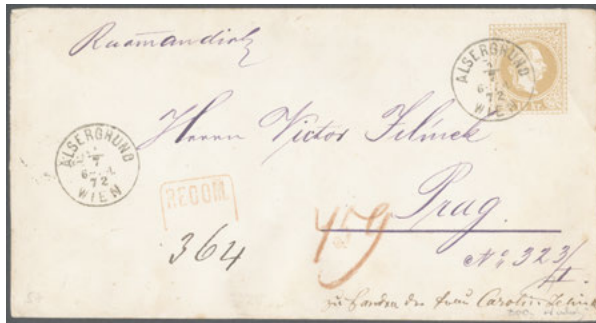 ALSERGRUND
7
72
WIEN
Herrn Victor Jelinek
ALSERGRUND
7
6
72
WIEN
RECOM.
Prag.
364
459
No 323/II.
zu Handen der Frau Carolin Jelinek